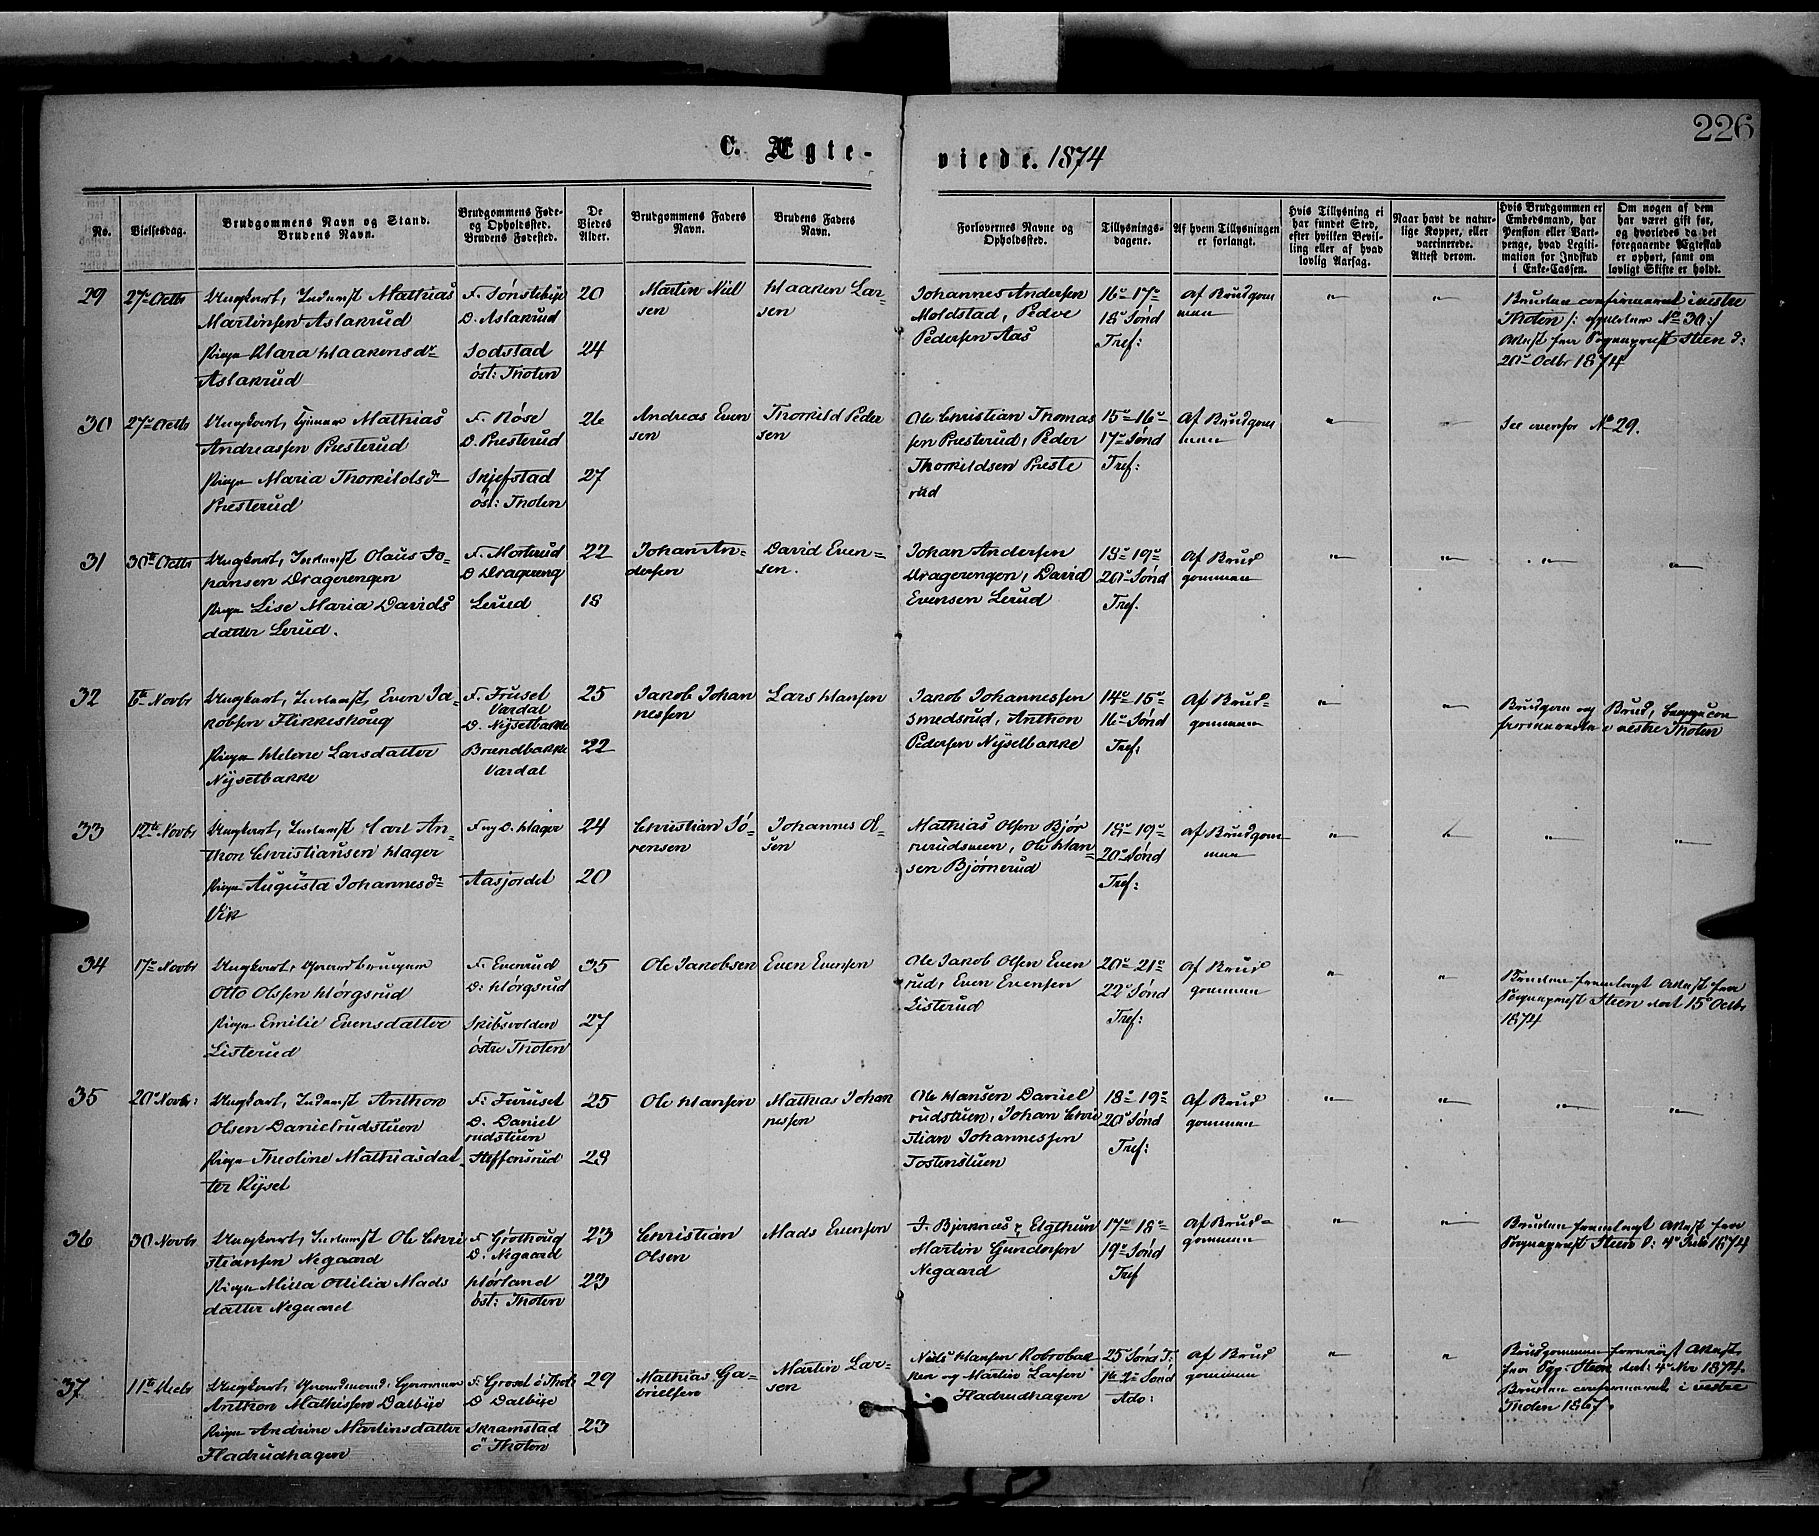 226
C. Ægte-
viede. 1874
No.
Vielsesdag.
Brudgommens Navn og Stand.
Brudens Navn.
Brudgommens Føde-
og Opholdssted.
Brudens Fødested.
De
Viedes
Alder.
Brudgommens Faders
Navn.
Brudens Faders
Navn.
Forlovernes Navne og
Opholdssted.
Tillysnings-
dagene.
Af hvem Tillysningen
er forlangt.
Hvis Tillysning ei
har fundet Sted,
efter hvilken Bevil-
ling eller af hvad
lovlig Aarsag.
Naar havt de natur-
lige Kopper, eller
vaccinerede.
Attest derom.
Hvis Brudgommen er
Embedsmand, har
Pension eller Vart-
penge, hvad Legiti-
mation for Indskud
i Enke-Cassen.
Om nogen af dem
har været gift før,
og hvorledes da det
foregaaende Ægteskab
er ophørt, samt om
lovligt Skifte er holdt.
29
27de Octbr
Ungkarl, Inderst Mathias
Martinsen Aslakrud
Pige Klara Haakensdr
Aslakrud
F. Sønsteby
D. Aslakrud
Sodstad
öst: Thoten
20
24
Martin Niel
sen
Haaken Lar
sen
Johannes Andersen
Moldstad, Peder
Pedersen Aas
16de 17de
18de Sønd
Tref:
Af Brudgom
men
"
"
Bruden confirmeret i vestre
Thoten /: ogsaa No 30:/
Attest fra Sogneprest Steen d:
20de Octbr 1874
30
27de Octbr
Ungkarl, Mathias
Andreassen Presterud
Pige Maria Thorkildsd
Presterud
F. Røse
D. Presterud
Skjefstad
öst: Thoten
26
27
Andreas Even
sen
Thorkild Peder
sen
Ole Christian Thomas
sen Presterud, Peder
Thorkildsen Preste
rud
15de 16de
17de Sønd
Tref:
Af Brudgom
men
"
"
See ovenfor No 29.
31
30te Octbr
Ungkarl, Inderst Olaus Jo-
hansen Dragerengen
Pige Lise Maria Davids
datter Lerud.
F. Morterud
D Dragereng
Lerud
22
18
Johan An-
dersen
David Even-
sen.
Johan Andersen
Dragerengen, David
Evensen Lerud
18de 19de
20de Sønd
Tref.
Af Brud
gommen
"
"
"
"
32
6te Novbr
Ungkarl, Inderst, Even Ja-
kobsen Flikkeshoug
Pige Helene Larsdatter
Nyselbakke
F. Fruset
Vardal
D. Nyselbakke
Brændbakke
Vardal
25
22
Jakob Johan
nessen
Lars Hansen
Jakob Johannessen
Smedsrud, Anthon
Pedersen Nyselbakke
14de 15de
16de Sønd
Tref:
Af Brud-
gommen
"
"
Brudgom og Brud, begge con
firmerede i vestre Thoten
33
12te Novbr
Ungkarl, Inderst Carl An-
thon Christiansen Hager
Pige Augusta Johannesd
Vik
F. og D. Hager
Aasjordet
24
20
Christian Sö-
rensen
Johannes Ol-
sen
Mathias Olsen Bjør
nerudseien, Ole Han-
sen Bjørnerud
18de 19de
20de Sønd
Tref:
Af Brudgom-
men
"
"
"
"
34
17de Novbr
Ungkarl, Gaardbruger
Otto Olssen Hørgsrud
Pige Emilie Evensdatter
Listerud
F. Evenrud
D: Hørgsrud
Skibsvolden
östre Thoten
35
27
Ole Jakobsen
Even Evensen
Ole Jakob Olsen Even
rud, Even Evensen
Listerud
20de 21de
22de Sønd
Tref:
Af Brud
gommen
"
"
Bruden fremlagt Attest fra
Sogneprest Steen dat 15de Octbr
1874
35
20de Novbr:
Ungkarl, Inderst Anthon
Olsen Danielrudstuen
Pige Theoline Mathiasdat
ter Ryset
F. Furuset
D. Daniel
rudstuen
Steffensrud
25
28
Ole Hansen
Mathias Johan
nessen
Ole Hansen Daniel
rudstuen, Johan Chri
stian Johannessen
Tostenstuen
18de 19de
20de Sønd
Tref:
Af Brud
gommen
"
"
"
"
36
30 Novbr
Ungkarl, Inderst Ole Chri
stiansen Negaard
Pige Milla Ottilia Mads
datter Negaard
F. Grøthoug
D. Negaard
Hørland
öst: Thoten
23
23
Christian
Olsen
Mads Evensen
J. Bjerknæs Elgthun
Martin Gundersen
Negaard
17de 18de
19de Sønd
Tref
Af Brud-
gommen
"
"
Bruden fremlagt Attest fra
Sogneprest Steen d: 4de 1874
37
11te Decbr
Ungkarl,
Anthon Mathissen Dalbye
Pige Andrine Martinsdatter
Fladrudhagen
F. Grøset ö: Thot
D Dalbye
Skramstad
ö Thoten
29
23
Mathias Ga-
brielsen
Martin Lar-
sen
Niels Hansen Kobrobak
ken og Martin Larsen
Fladrudhagen
25 Sønd T:
1te 2de Sønd
Adv:
Af Brud
gommen
"
"
Brudgommen Attest
fra Steen dat: 4de Nov 1874.
Bruden confirmeret i vestre
Thoten 1867.